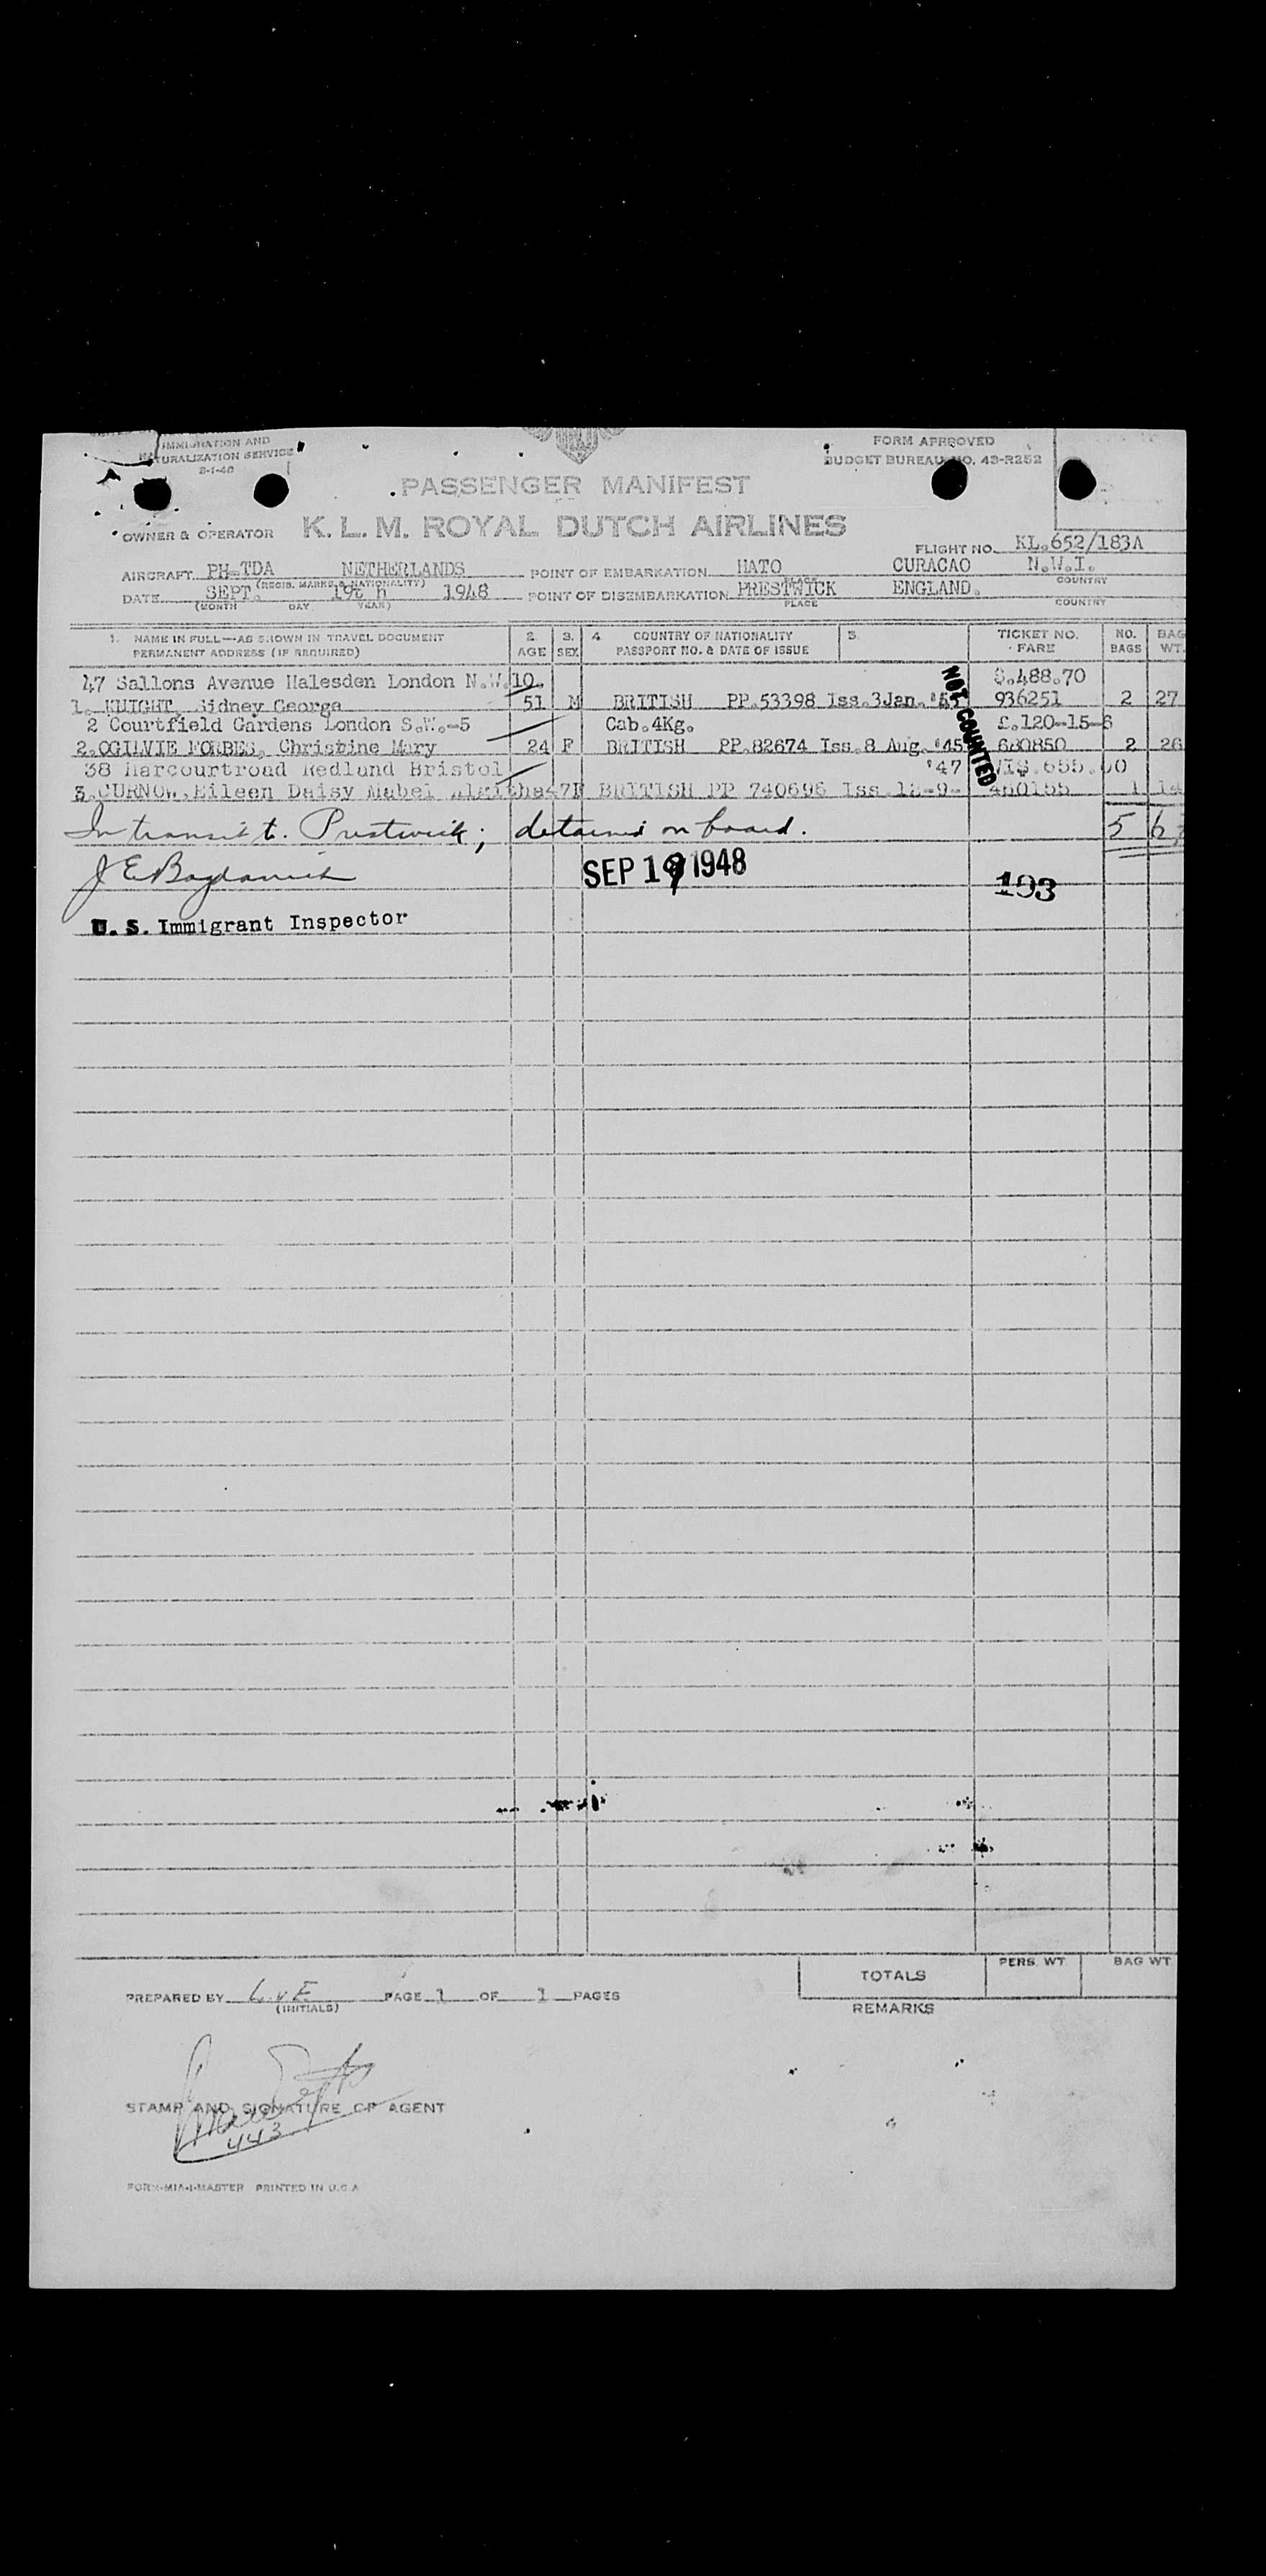 IMMIGRATION AND
NATURALIZATION SERVICE
FORM APPROVED
BUDGET BUREAU NO. 43-R252
PASSENGER MANIFEST
OWNER & OPERATOR K. L. M. ROYAL DUTCH AIRLINES
FLIGHT NO. KL.652/183A
AIRCRAFT PH-TDA NETHERLANDS POINT OF EMBARKATION HATO CURACAO N.W.I.
(REGIS. MARKS & NATIONALITY) PLACE COUNTRY
DATE SEPT. 19t h 1948 POINT OF DISEMBARKATION PRESTWICK ENGLAND.
(MONTH DAY YEAR) PLACE COUNTRY
1. NAME IN FULL—AS SHOWN IN TRAVEL DOCUMENT 2. 3. 4. COUNTRY OF NATIONALITY 5. TICKET NO. NO. BAG
PERMANENT ADDRESS (IF REQUIRED) AGE SEX PASSPORT NO. & DATE OF ISSUE FARE BAGS WT.
47 Sallons Avenue Halesden London N.W.10. 488.70
1. KNIGHT, Sidney George 51 M BRITISH PP.53398 Iss.3Jan. 936251 2 27
2 Courtfield Gardens London S.W.-5 Cab.4Kg. £.120-15-6
2.OGILVIE FORBES, Christine Mary 24 F BRITISH PP.82674 Iss.8 Aug.'45 680850 2 26
38 Harcourtroad Redland Bristol '47 655.00
3.CURNOW,Eileen Daisy Mabel 47F BRITISH PP 740696 Iss 480155 1 14
NOT COUNTED
In transit to Prestwick; detained on board. 5 67
J E Bogdanich SEP 19 1948 193
U. S. Immigrant Inspector
TOTALS PERS. WT. BAG WT
PREPARED BY L.v E PAGE 1 OF 1 PAGES
(INITIALS) REMARKS
STAMP AND SIGNATURE OF AGENT
443
FORM-MIA-1-MASTER PRINTED IN U.S.A